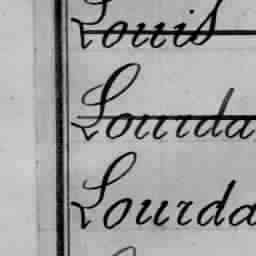 Louis
Lourda
Lourda